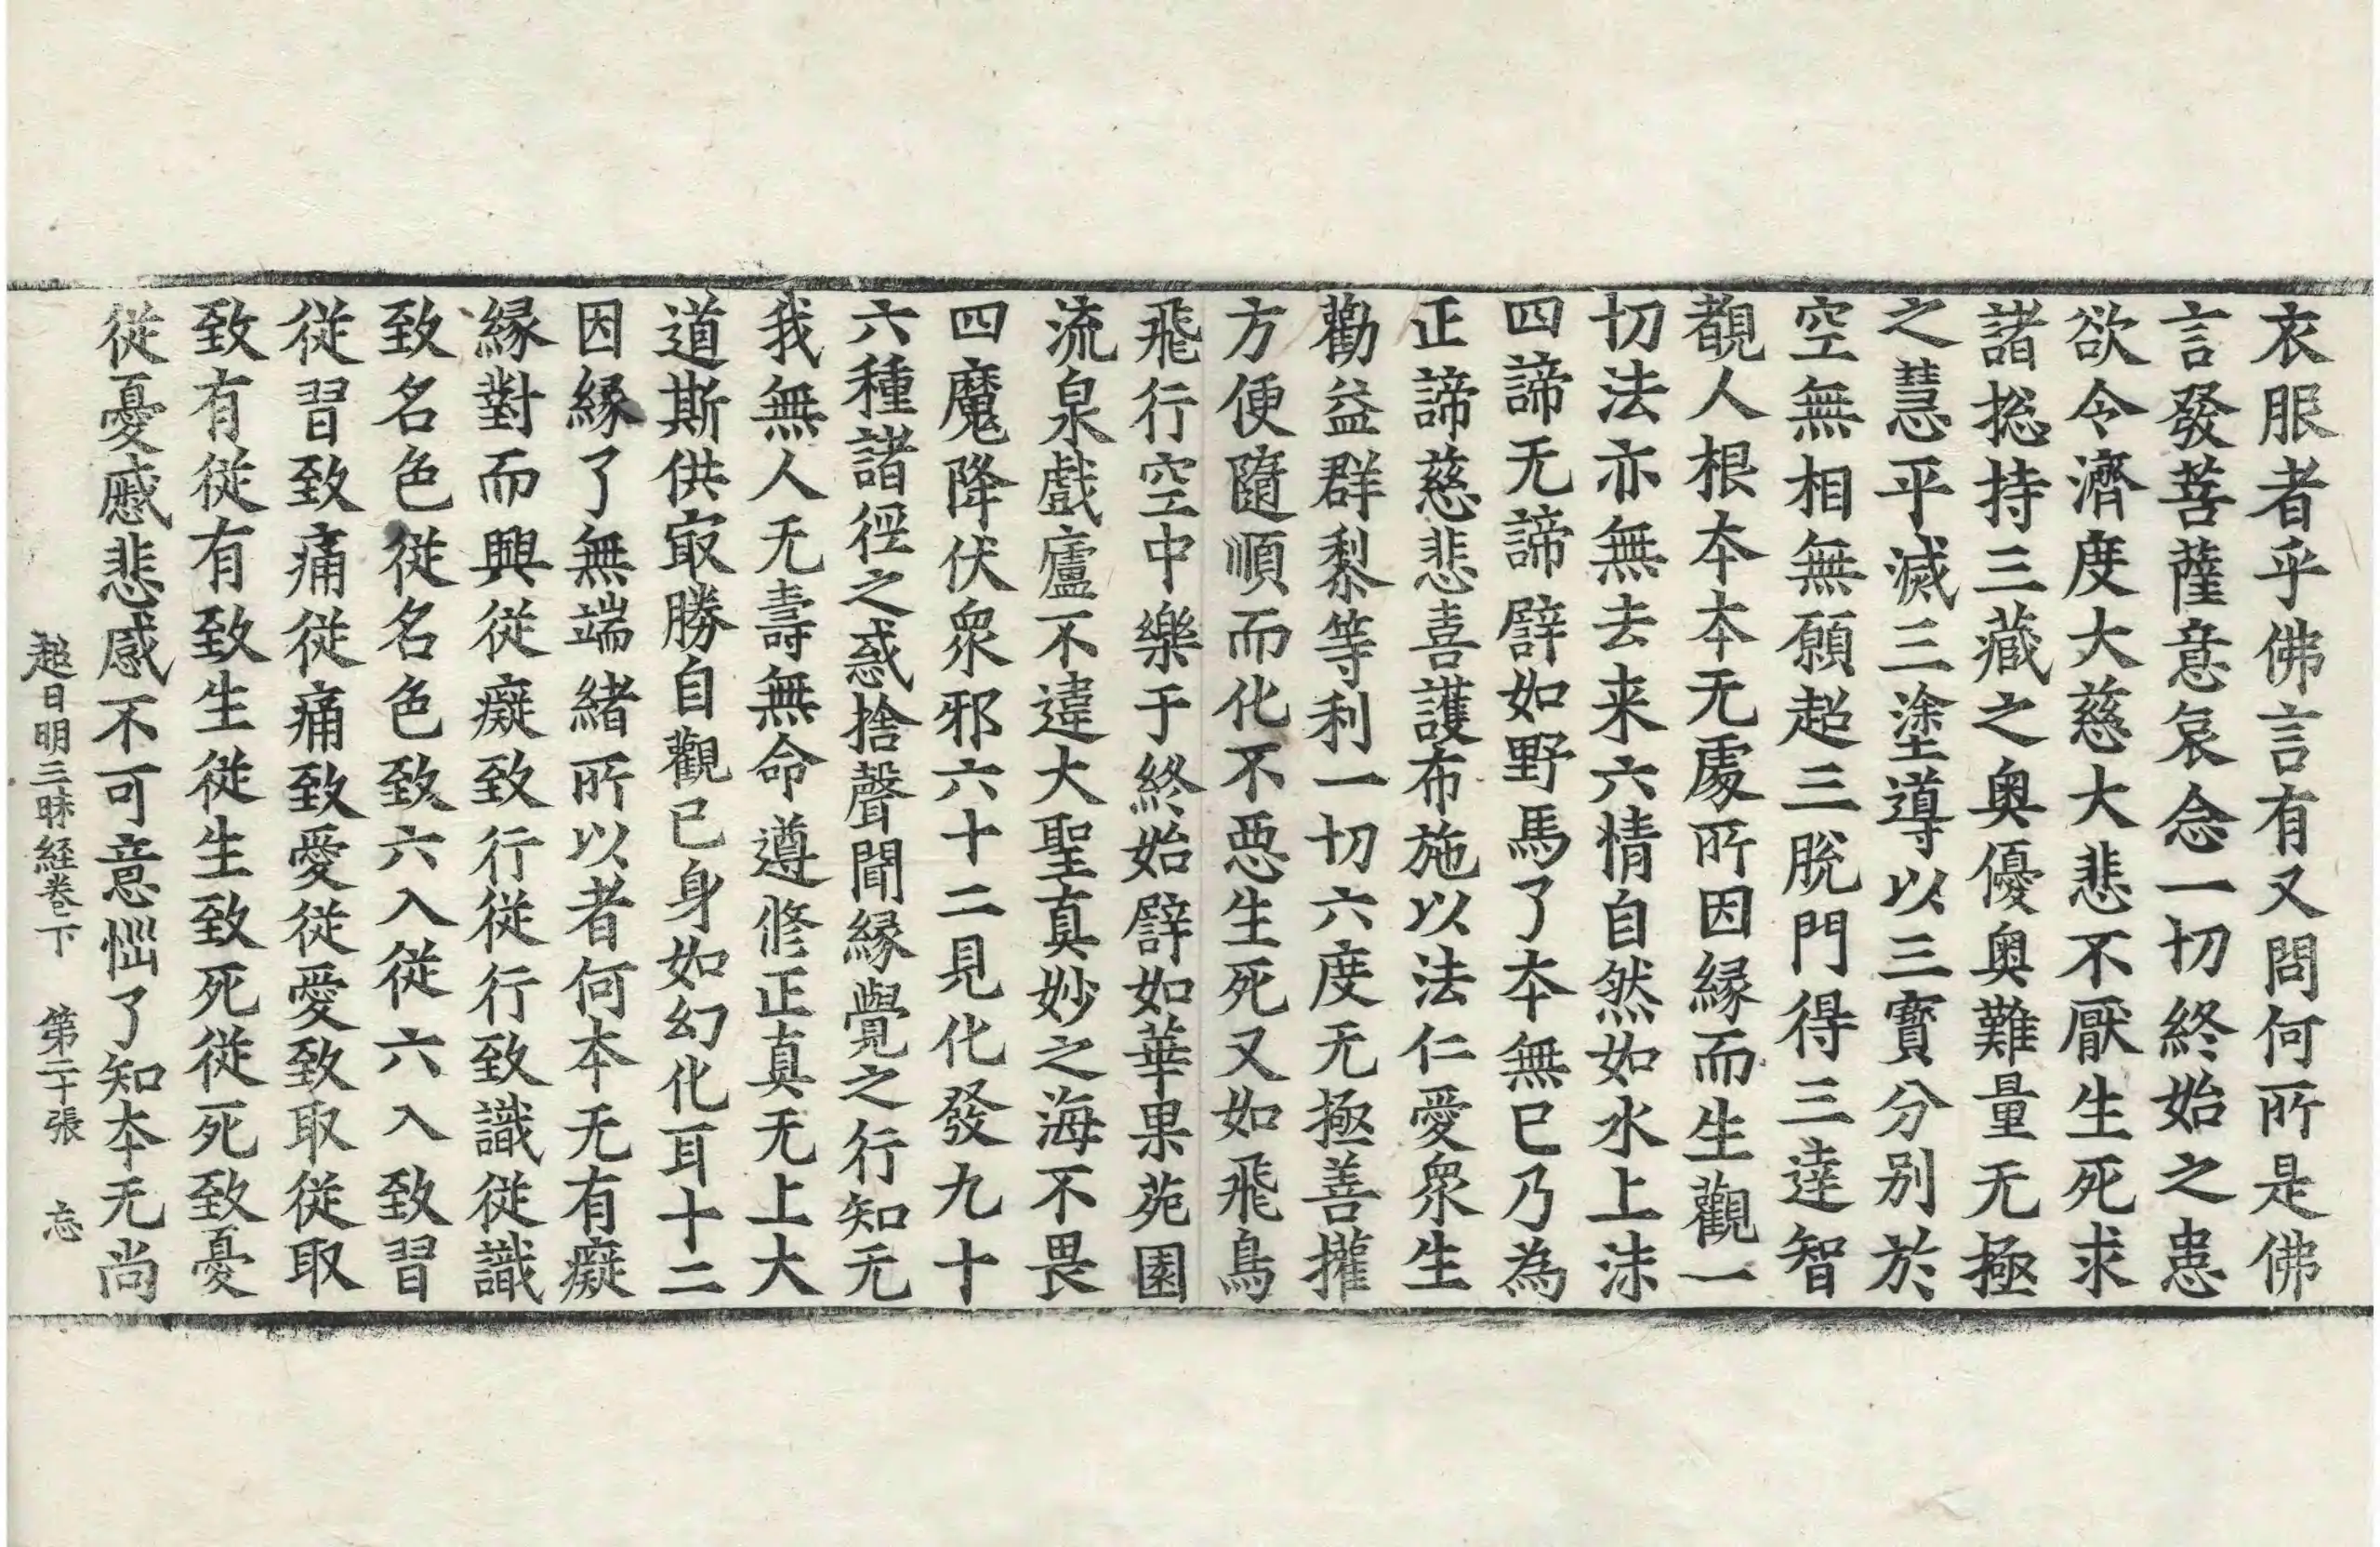 衣服者乎佛言有又問何所是佛
言發菩薩意哀念一切終始之患
欲令濟度大慈大悲不厭生死求
諸捴持三藏之奧優奧難量无極
之慧乎滅三塗導以三寶分別於
空無相無願超三脫門得三達智
覩人根本本无處所因緣而生觀一
切法亦無去来六情自然如水上沫
四諦无諦譬如野馬了本無已乃為
正諦慈悲喜護布施以法仁愛衆生
勸益群黎等利一切六度无極善攉
方便隨順而化不惡生死又如飛鳥
飛行空中樂于終始譬如華果苑園
流泉戲廬不違大聖真妙之海不畏
四魔降伏衆邪六十二見化發九十
六種諸徑之惑捨聲聞緣覺之行知无
我無人无壽無命遵修正真无上大
道斯供㝡勝自觀已身如幻化耳十二
因緣了無端緒所以者何本无有癡
緣對而興從癡致行從行致識從識
致名色從名色致六入從六入致習
從習致痛從痛致愛從愛致取從取
致有從有致生從生致死從死致憂
從憂慼悲感不可意惱了知本无尚
超日明三昧経卷下　第二十張　忘